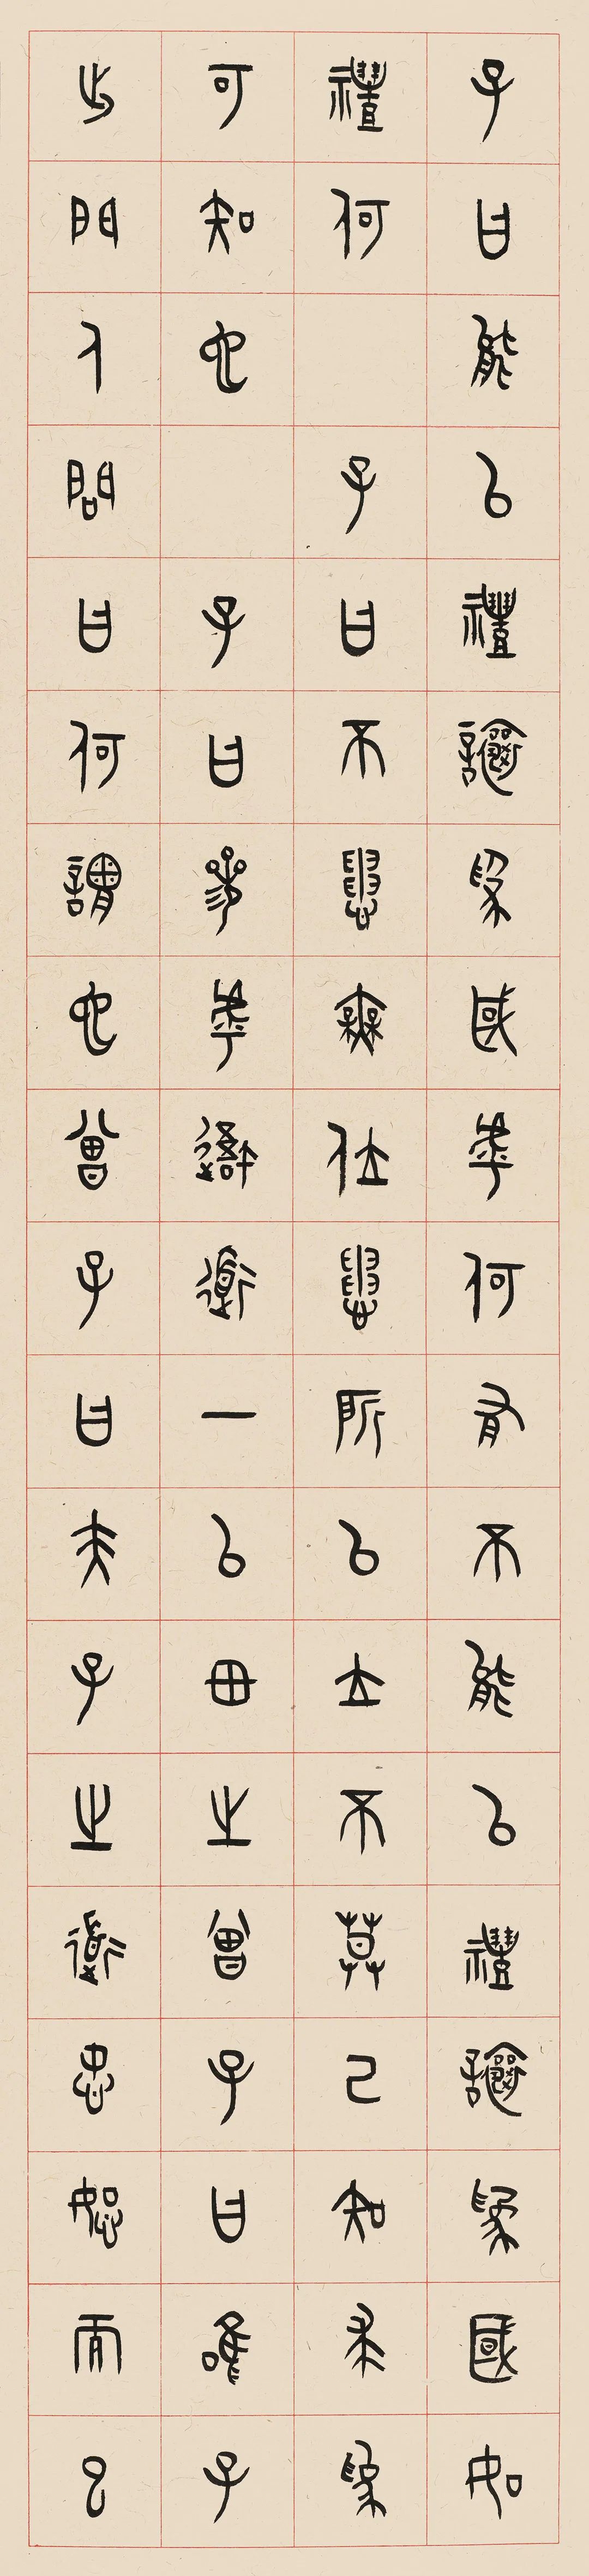 子曰能以禮讓為國乎何有不能以禮讓為國如
禮何 子曰不患無位患所以立不莫己知求為
可知也 子曰參乎吾道一以貫之曾子曰唯子
出門人問曰何謂也曾子曰夫子之道忠恕而已